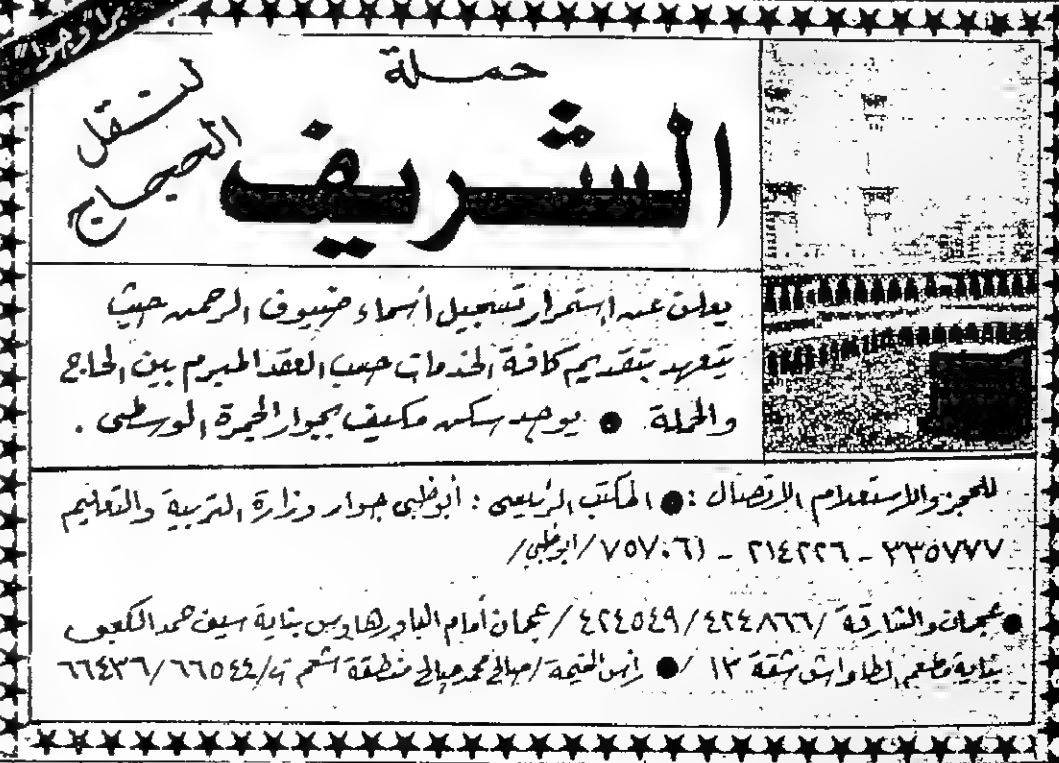 برا وجوا"
حملة
الشريف
لنقل
الحجاج
يعلن عن استمرار تسجيل أسماء ضيوف الرحمن حيث
يتعهد بتقديم كافة الخدمات حسب العقد المبرم بين الحاج
والحملة ● يوجد سكن مكيف بجوار الجمرة الوسطى .
للحجز والاستعلام الاتصال : ● المكتب الرئيسي : أبوظبي جوار وزارة التربية والتعليم
٣٣٥٧٧٧ - ٢١٤٢٢٦ - ٧٥٧٠٦١ /ابوظبي/
● عجمان والشارقة /٤٢٤٨٦٦/ ٤٢٤٥٤٩/ عجمان أمام الباورهاوس بناية سيف حمد الكعبي
بناية مطعم الطاووس شقة ١٣ / ● راس الخيمة / صالح محمد صالح منطقة شعم ت/ ٦٦٥٤٤/ ٦٦٤٣٦